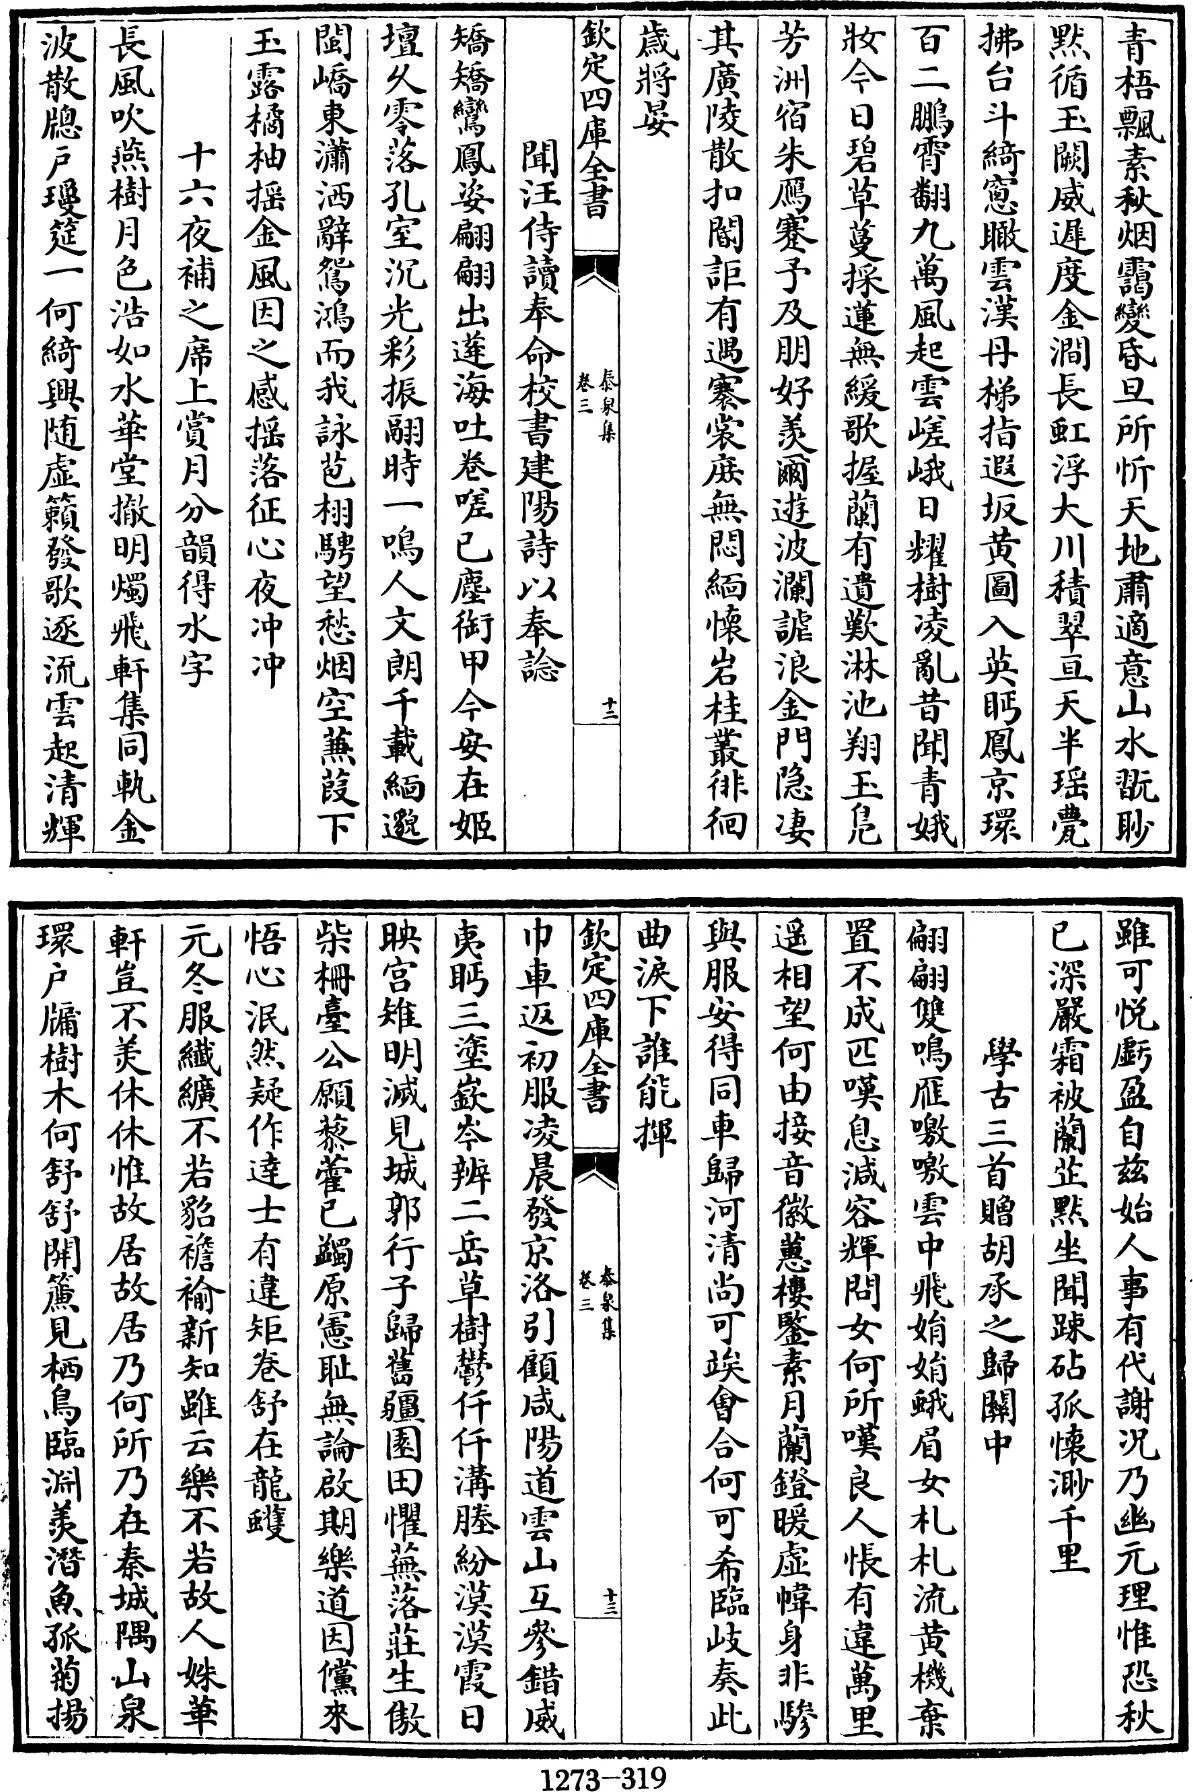 青梧飄素秋烟靄變昏旦所忻天地肅適意山水翫眇
黙循玉闕威遲度金澗長虹浮大川積翠亘天半瑶甍
拂台斗綺窻瞰雲漢丹梯指遐坂黄圖入英眄鳳京環
百二鵬霄翻九萬風起雲嵯峨日耀樹凌亂昔聞青娥
妝今日碧草蔓採蓮無緩歌握蘭有遺歎淋池翔玉鳬
芳洲宿朱鴈蹇予及朋好羨爾遊波瀾謔浪金門隠凄
其廣陵散扣閽詎有遇褰裳庶無悶緬懷岩桂叢徘徊
歳將晏
欽定四庫全書
泰泉集
卷三
十二
聞汪侍讀奉命校書建陽詩以奉諗
矯矯鸞鳳姿翩翩出蓬海吐卷嗟已塵銜甲今安在姬
壇久零落孔室沉光彩振翮時一鳴人文朗千載緬邈
閩嶠東瀟洒辭鴛鴻而我詠苞栩騁望愁烟空蒹葭下
玉露橘柚揺金風因之感揺落征心夜冲冲
十六夜補之席上賞月分韻得水字
長風吹燕樹月色浩如水華堂撤明燭飛軒集同軌金
波散牎戸瓊筵一何綺興随虚籟發歌逐流雲起清輝
雖可悦虧盈自兹始人事有代謝况乃幽元理惟恐秋
已深嚴霜被蘭芷黙坐聞踈砧孤懐渺千里
學古三首贈胡承之歸關中
翩翩雙鳴雁噭噭雲中飛娟娟蛾眉女札札流黄機棄
置不成匹嘆息減容輝問女何所嘆良人悵有違萬里
遥相望何由接音徽蕙樓鑒素月蘭鐙暖虚幃身非驂
與服安得同車歸河清尚可竢會合何可希臨岐奏此
曲淚下誰能揮
欽定四庫全書
泰泉集
卷三
十三
巾車返初服凌晨發京洛引顧咸陽道雲山互參錯威
夷眄三塗嶔岑辨二岳草樹鬱仟仟溝塍紛漠漠霞日
映宫雉明滅見城郭行子歸舊疆園田懼蕪落莊生傲
柴柵臺公願藜藿已蠲原憲恥無論啟期樂道因儻來
悟心泯然疑作達士有違矩卷舒在龍蠖
元冬服纎纊不若貂襜褕新知雖云樂不若故人姝華
軒豈不羙休休惟故居故居乃何所乃在秦城隅山泉
環戸牖樹木何舒舒開簾見栖鳥臨淵羨潛魚孤菊揚
1273-319